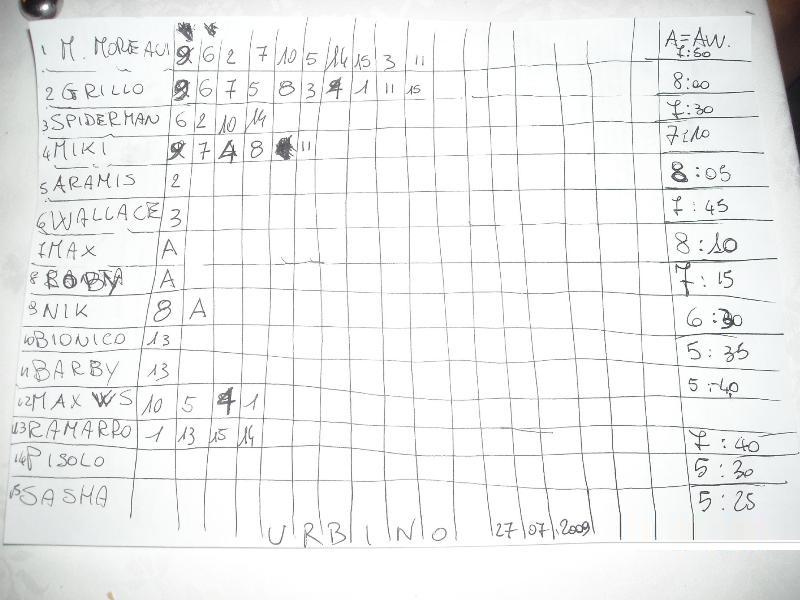 A=AW.
1 M. MOREAU 9 6 2 7 10 5 14 15 3 11 7:50
2 GRILLO 9 6 7 5 8 3 4 1 11 15 8:00
3 SPIDERMAN 6 2 10 14 7:30
4 MIKI 9 7 4 8 11 7:10
5 ARAMIS 2 8:05
6 WALLACE 3 7:45
7 MAX A 8:10
8 A 7:15
9 NIK 8 A 6:30
10 BIONICO 13 5:35
11 BARBY 13 5:40
12 MAX WS 10 5 4 1
13 RAMARRO 1 13 15 14 7:40
14 PISOLO 5:30
15 SASHA 5:25
URBINO 27 07.2009